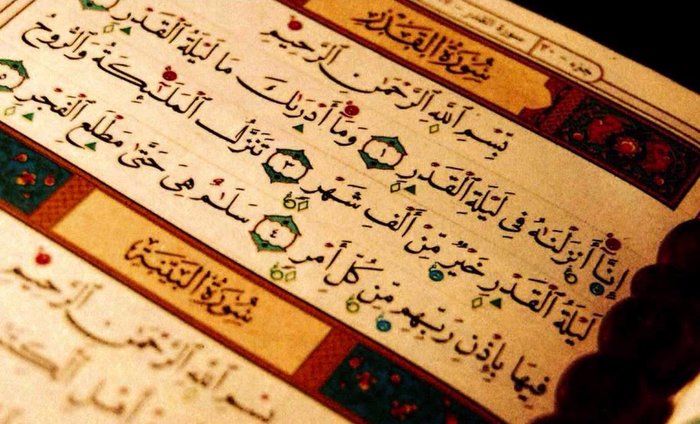 جزء ٣٠ سورة القدر
سُورَةُ القَدْرِ
بِسْمِ ٱللَّهِ ٱلرَّحْمَٰنِ ٱلرَّحِيمِ
إِنَّآ أَنزَلْنَٰهُ فِى لَيْلَةِ ٱلْقَدْرِ ١ وَمَآ أَدْرَىٰكَ مَا لَيْلَةُ ٱلْقَدْرِ
لَيْلَةُ ٱلْقَدْرِ خَيْرٌ مِّنْ أَلْفِ شَهْرٍ ٣ تَنَزَّلُ ٱلْمَلَٰٓئِكَةُ وَٱلرُّوحُ
فِيهَا بِإِذْنِ رَبِّهِم مِّن كُلِّ أَمْرٍ ٤ سَلَٰمٌ هِىَ حَتَّىٰ مَطْلَعِ ٱلْفَجْرِ ٥
سُورَةُ البَيِّنَةِ
بِسْمِ ٱللَّهِ ٱلرَّحْمَٰنِ ٱلرَّحِيمِ
أَهْلِ